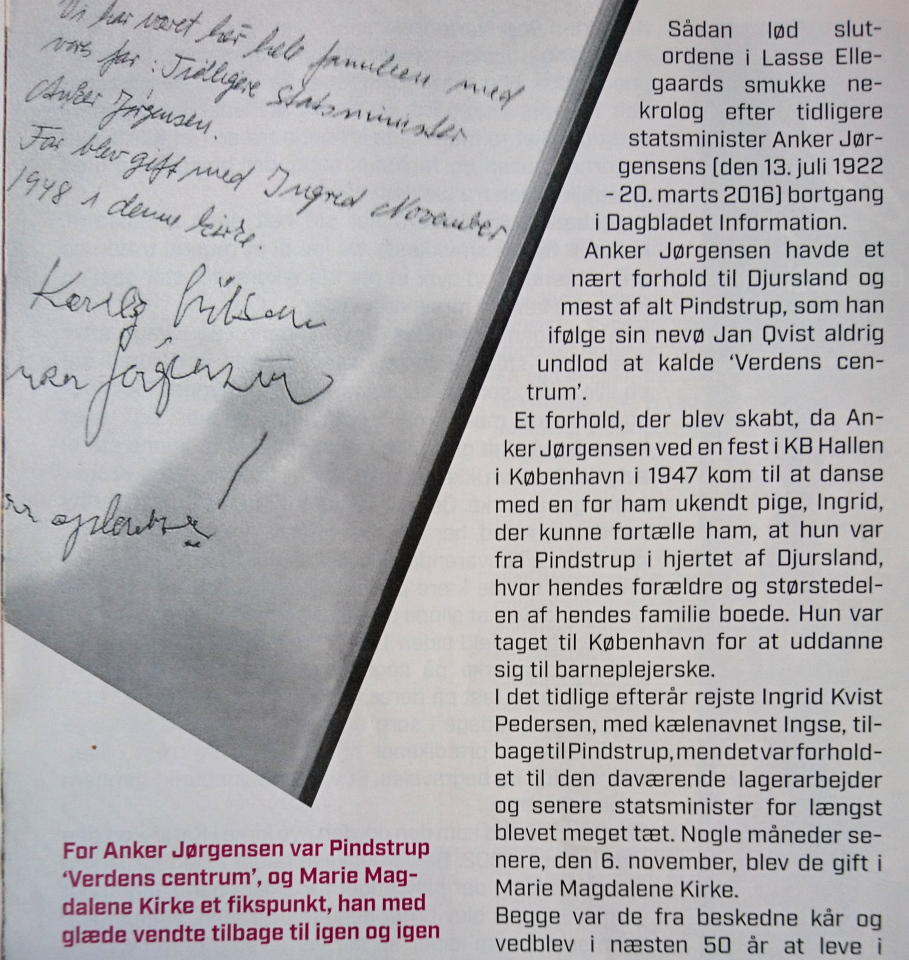 Vi har været her hele familien med
vores far: Tidligere Statsminister
Anker Jørgensen.
Far blev gift med Ingrid November
1948 i denne kirke.
Kærlig hilsen
Jørgensen
For Anker Jørgensen var Pindstrup
‘Verdens centrum’, og Marie Mag-
dalene Kirke et fikspunkt, han med
glæde vendte tilbage til igen og igen
Sådan lød slut-
ordene i Lasse Elle-
gaards smukke ne-
krolog efter tidligere
statsminister Anker Jør-
gensens (den 13. juli 1922
- 20. marts 2016) bortgang
i Dagbladet Information.
Anker Jørgensen havde et
nært forhold til Djursland og
mest af alt Pindstrup, som han
ifølge sin nevø Jan Qvist aldrig
undlod at kalde ‘Verdens cen-
trum’.
Et forhold, der blev skabt, da An-
ker Jørgensen ved en fest i KB Hallen
i København i 1947 kom til at danse
med en for ham ukendt pige, Ingrid,
der kunne fortælle ham, at hun var
fra Pindstrup i hjertet af Djursland,
hvor hendes forældre og størstedel-
en af hendes familie boede. Hun var
taget til København for at uddanne
sig til barneplejerske.
I det tidlige efterår rejste Ingrid Kvist
Pedersen, med kælenavnet Ingse, til-
bage til Pindstrup, men det var forhold-
et til den daværende lagerarbejder
og senere statsminister for længst
blevet meget tæt. Nogle måneder se-
nere, den 6. november, blev de gift i
Marie Magdalene Kirke.
Begge var de fra beskedne kår og
vedblev i næsten 50 år at leve i